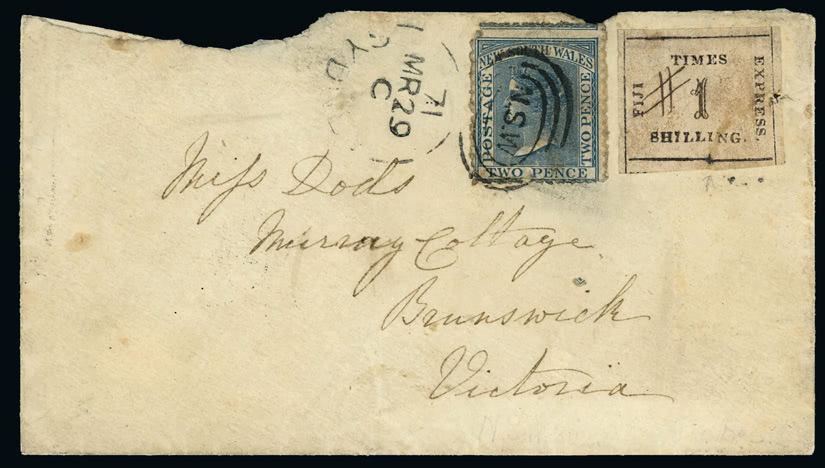 SYD
MR 29
C
71
NEW SOUTH WALES
POSTAGE
TWO PENCE
TWO PENCE
N.S.W
FIJI
TIMES
EXPRESS.
1
SHILLING.
Miss Dods
Murray Cottage
Brunswick
Victoria